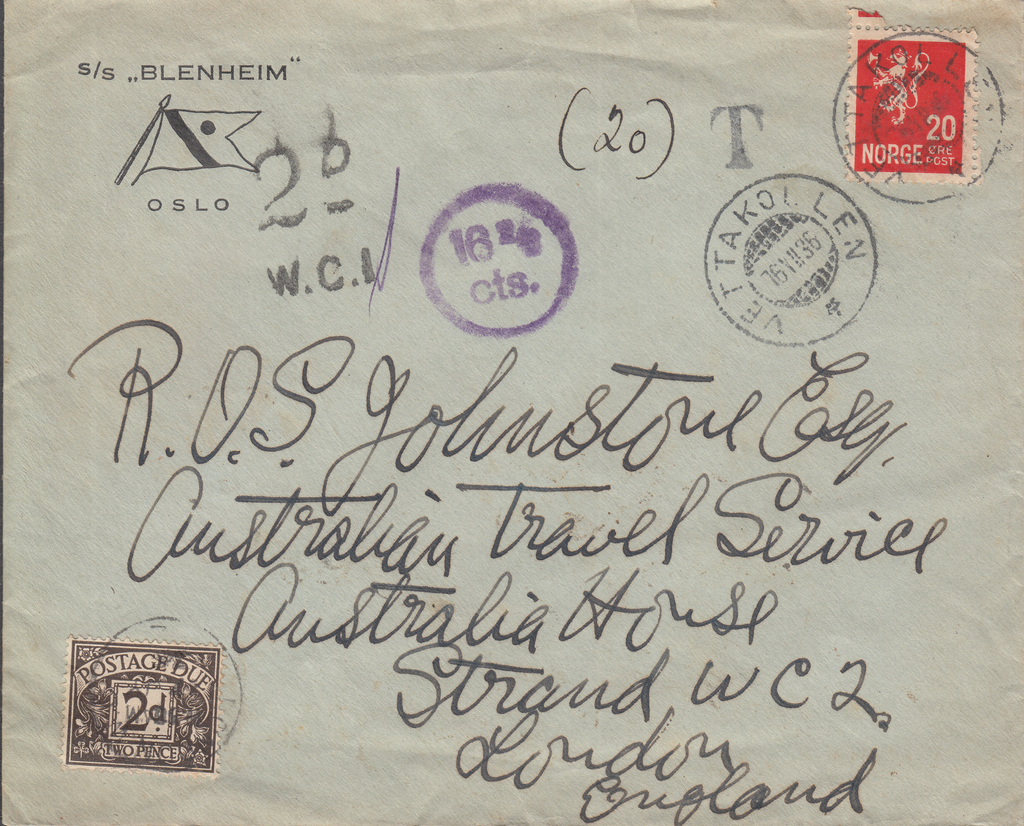 s/s „BLENHEIM"
OSLO
2D
W.C.1
(20)
T
16 4
cts.
20
NORGE ØRE
POST
VETTAKOLLEN
16 VII 36
R.O.S. Johnstone Esq.
Australian Travel Service
Australia House
Strand, WC2.
London
England
POSTAGE DUE
2d.
TWO PENCE